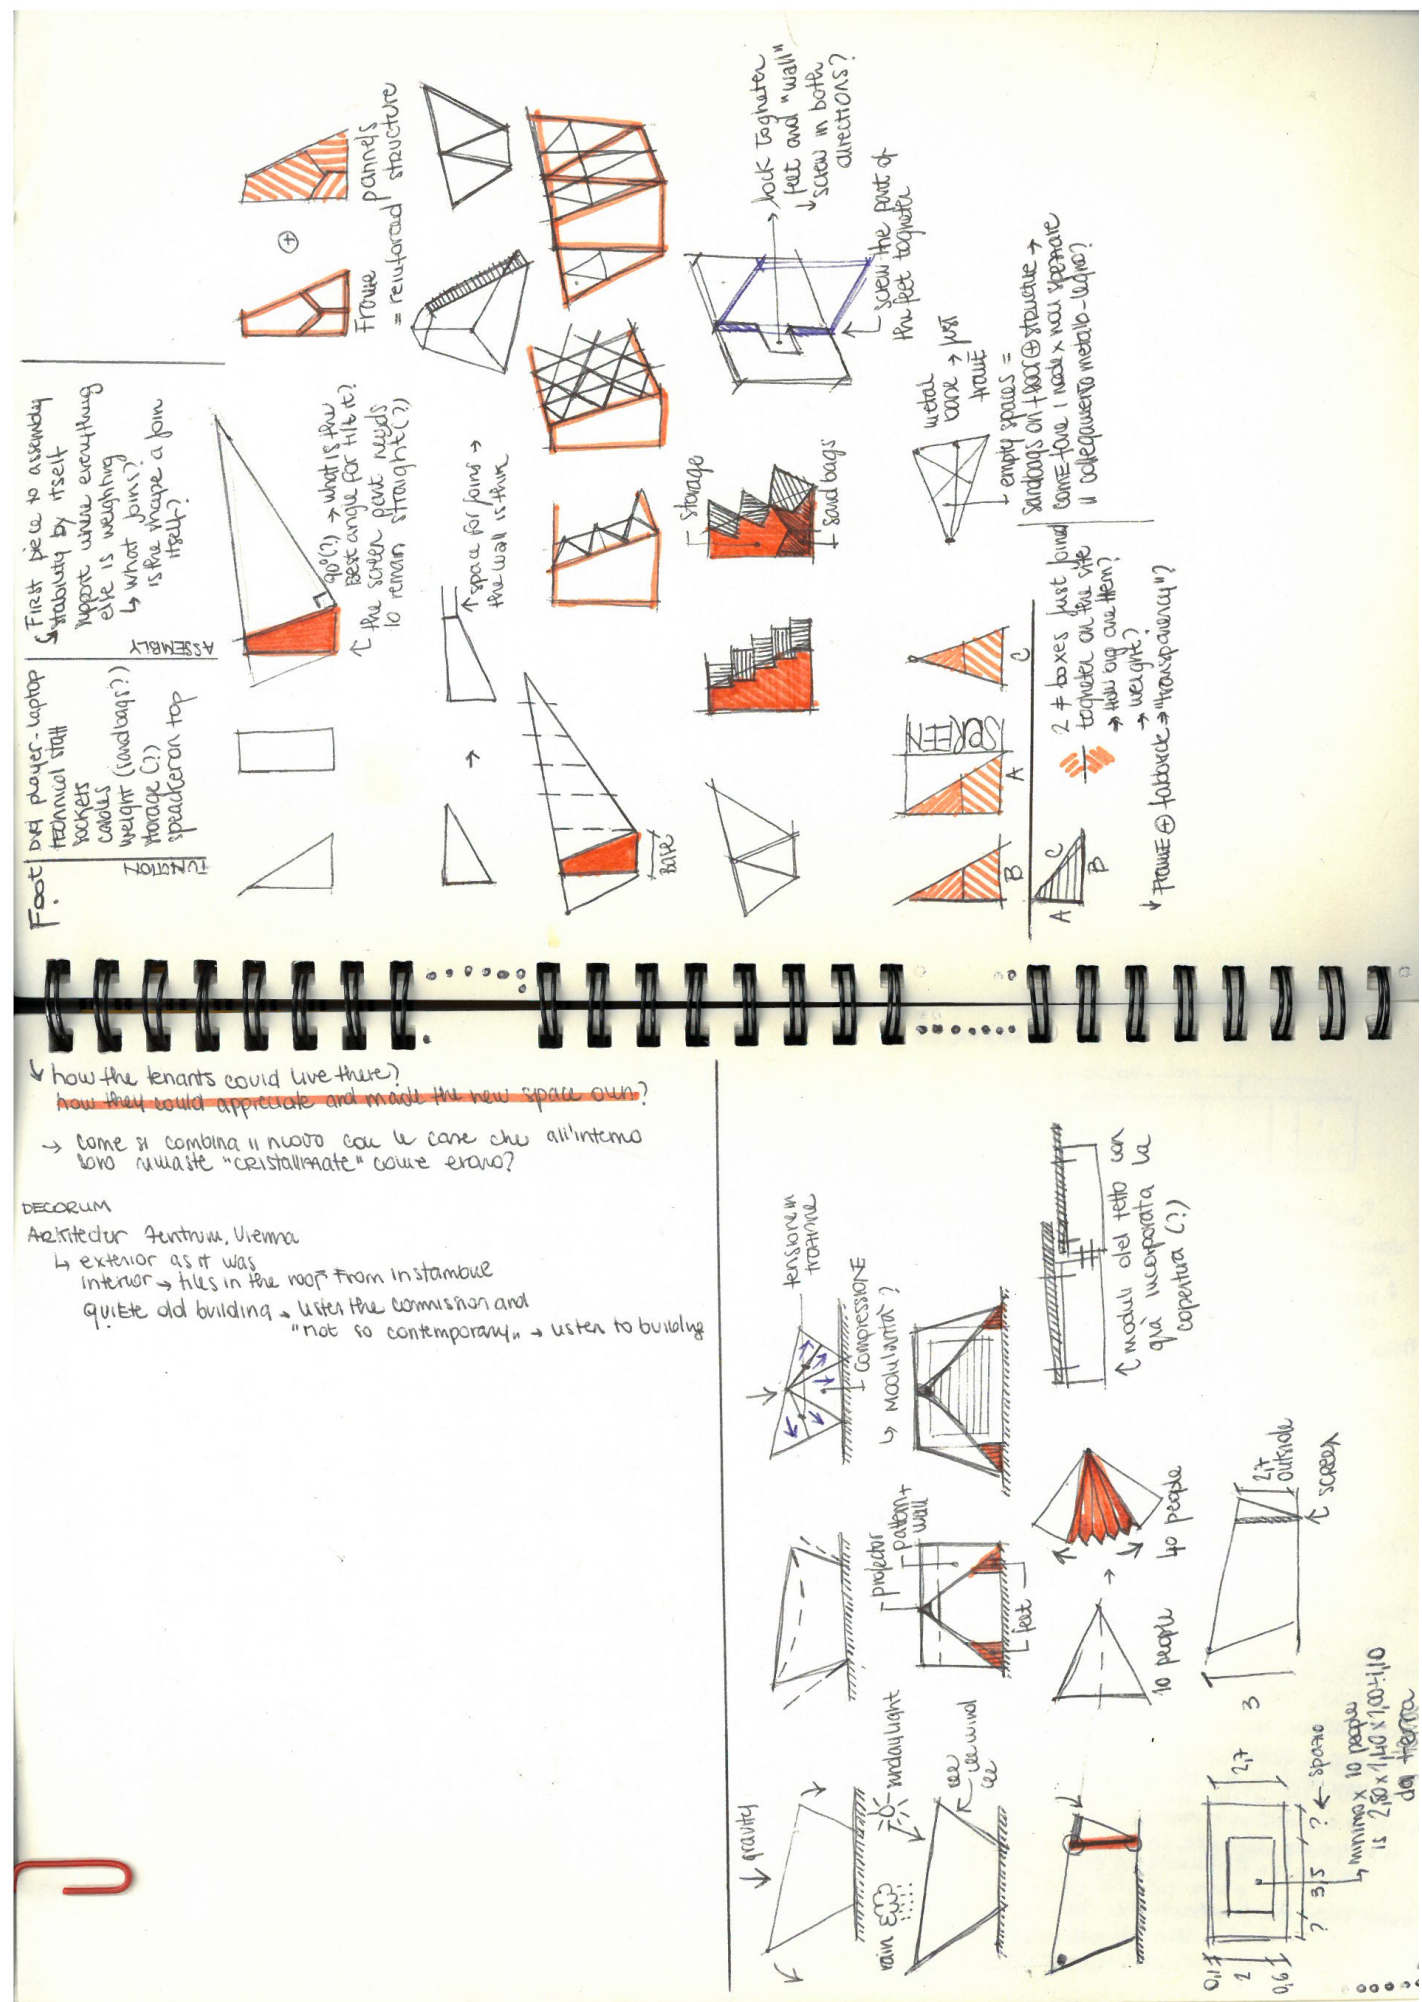 Foot
FUNCTION
DVD player - laptop
technical staff
sockets
cables
weight (sandbags?)
storage (?)
speackeron top
ASSEMBLY
First piece to assembly
stability by itself
support where everything
else is weighting
↳ what joins?
is the shape a join
itself?
90°(?) → what is the
best angle for tilt it?
the screen part needs
to remain straight (?)
Frame
⊕
pannels
= reinforced structure
→
space for joins →
the wall is thin
base
storage
sandbags
lock togheter
feet and "wall"
screw in both
directions?
screw the part of
the feet togheter
B
A
SCREEN
C
metal
base → just
frame
empty spaces =
sandbags on floor ⊕ structure →
come fare i nodi x non spezzare
il collegamento metallo-legno?
A
C
B
2 ≠ boxes just joined
togheter on the site
→ How big are them?
→ weight?
↓ FRAME ⊕ fabbrick → "transparency"?
↓ how the tenants could live there?
how they could appreciate and made the new space own?
→ come si combina il nuovo con le case che all'interno
sono rimaste "cristallizzate" come erano?
DECORUM
Arkitectur Zentrum, Vienna
↳ exterior as it was
interior → tiles in the roof from instambul
quiete old building → listen the commission and
"not so contemporary" → listen to building
gravity
tensione in
trazione
COMPRESSIONE
↳ modularità?
rain
sundaylight
wind
projector
pattern +
wall
feet
10 people
→
40 people
↑ moduli del tetto con
già incorporata la
copertura (?)
0,1
2
0,6
2,7
? 3,5 ?
← spazio
↳ minimo x 10 people
is 2,80 x 1,40 x 1,00÷1,10
da terra
3
2,7
outside
↑ screen